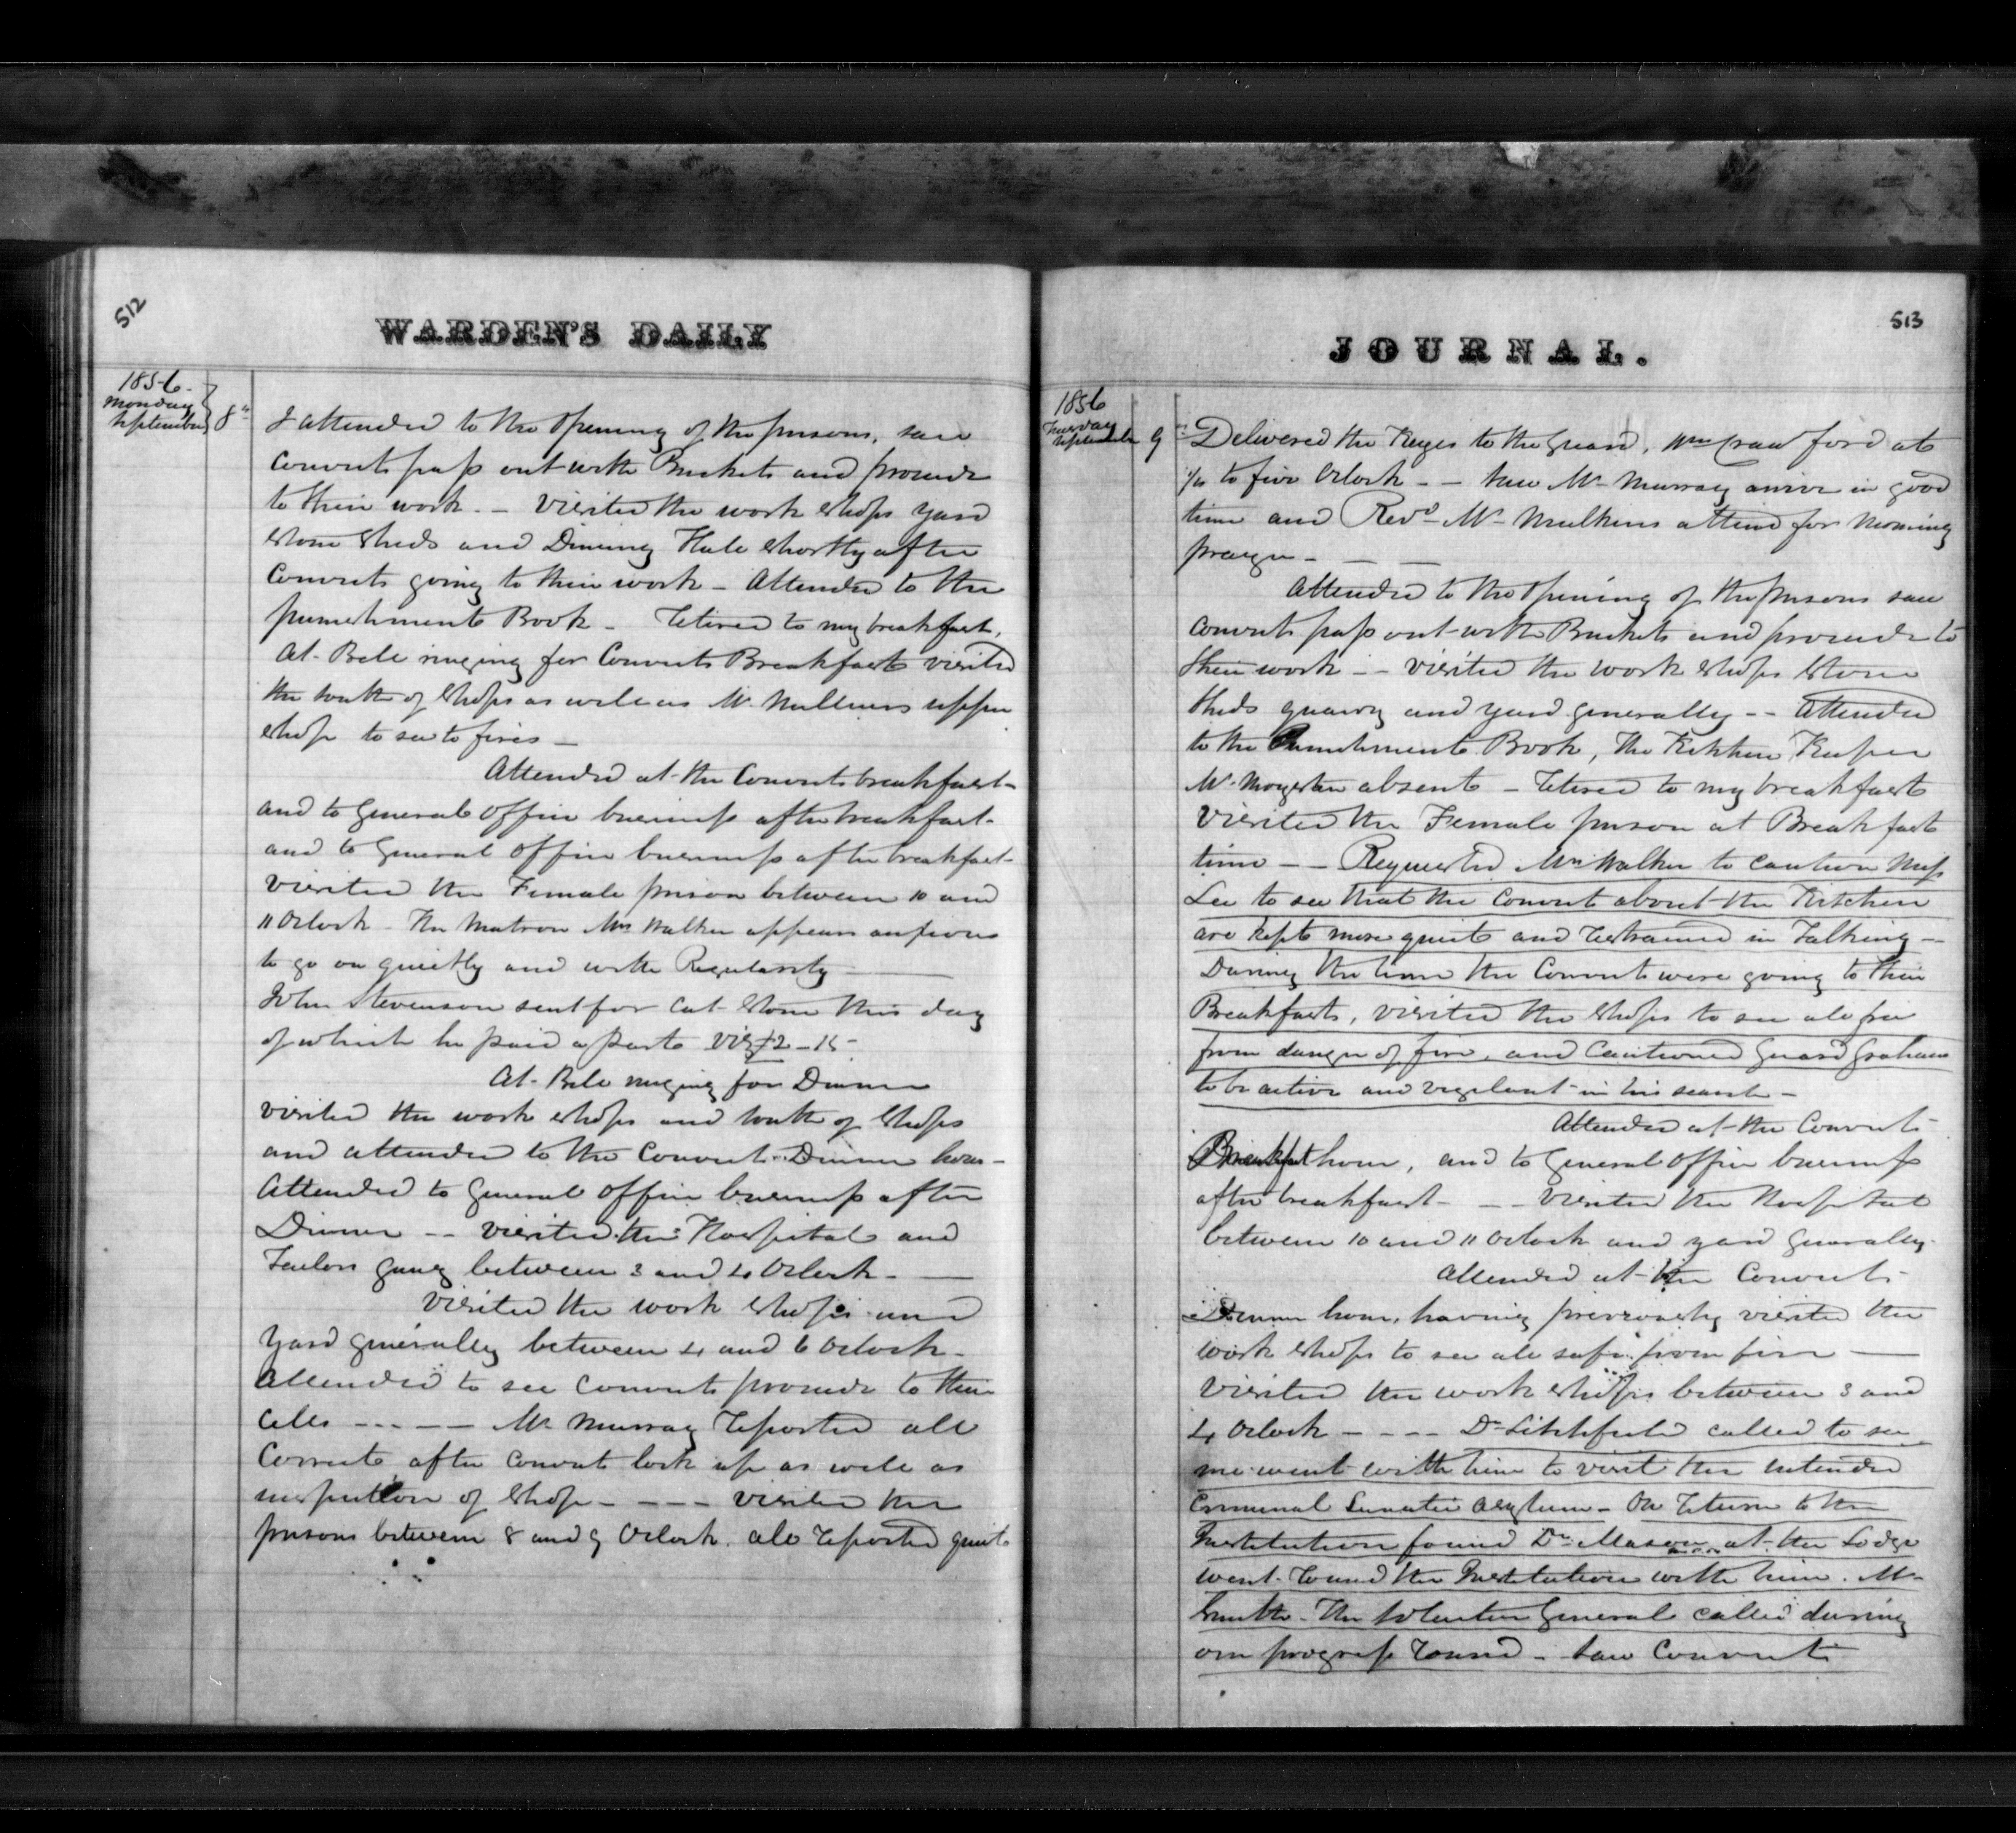 512
WARDEN'S DAILY
1856
Monday
September
8th
I attended to the opening of the prisons, saw
Convicts pass out with Buckets and proceede
to their work. - Visited the work shops yard
stone sheds and Dining Hall shortly after
Convicts going to their work - Attended to the
punishment Book - retired to my breakfast,
At Bell ringing for Convicts Breakfast visited
the south of shops as well as Mr. Millners upper
shop to see to fires -
Attended at the Convicts breakfast -
and to General Office business after breakfast -
and to General Office business after breakfast -
Visited the Female prison between 10 and
11 Oclock - The Matron Mrs Walker appears anxious
to go on quietly and with Regularity -
John Stevenson sent for Cut Stone this day
of which he paid a part viz £2-15-
At Bell ringing for Dinner
visited the work shops and south of shops
and attended to the Convicts Dinner hour -
Attended to General Office business after
Dinner - - visited the Hospital and
Tailors gang between 3 and 4 Oclock -
Visited the work shops and
yard generally between 4 and 6 Oclock -
Attended to see Convicts proceede to their
Cells - - - - Mr Murray reported all
Correct after Convicts lock up as well as
inspection of shops - - - - visited the
prisons between 8 and 9 Oclock. all reported quiet
JOURNAL.
513
1856
September
9
Delivered the Keyes to the Guard, Wm Crawford at
1/4 to five Oclock - - saw Mr Murray arrive in good
time and Revd Mr Mulkins attend for Morning
prayer - - -
Attended to the opening of the prisons saw
Convicts pass out with Buckets and proceede to
their work - - visited the work shops stone
sheds quarry and yard generally - - Attended
to the Punishment Book, The Kitchen Keeper
Mr absent - retired to my breakfast
Visited the Female prison at Breakfast
time - - Requested Mrs Walker to caution Miss
Lee to see that the Convicts about the Kitchen
are kept more quiet and restrained in Talking -
During the time the Convicts were going to their
Breakfasts, visited the shops to see all free
from danger of fire, and Cautioned Guard Graham
to be active and vigilant in his search -
Attended at the Convicts
Breakfast hour, and to General Office business
after breakfast - - - Visited the Hospital
between 10 and 11 Oclock and yard generally -
Attended at the Convicts
Dinner hour, having previously visited the
work shops to see all safe from fire -
Visited the work shops between 3 and
4 Oclock - - - - Dr Litchfield called to see
me went with him to visit the intended
Criminal Lunatic Asylum - On return to the
Institution found Dr Mason at the Lodge
went round the Institution with him. Mr
Smith - The Solicitor General called during
our progress round - saw Convict